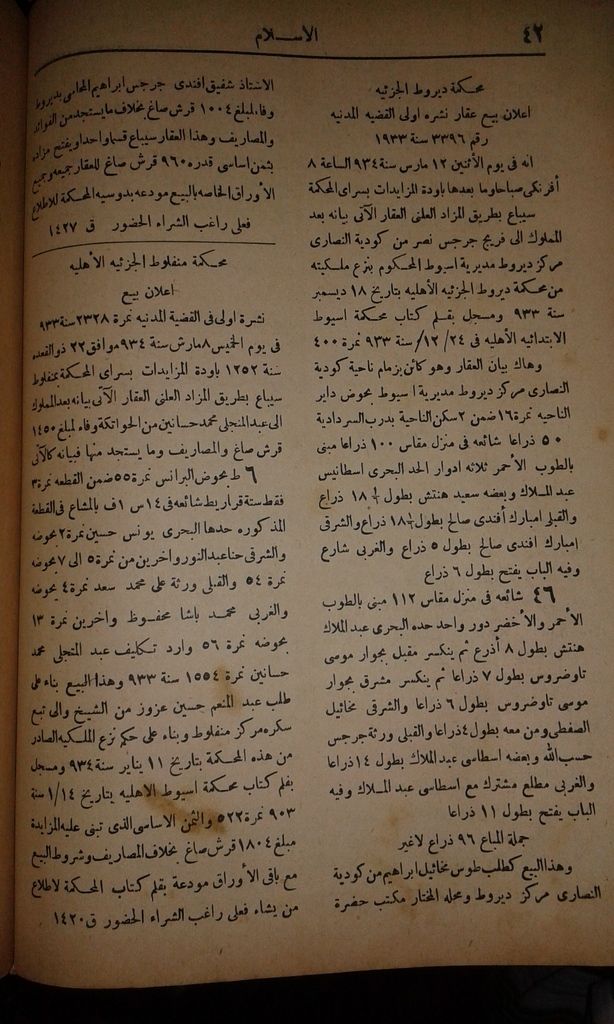 ٤٢
الاسلام
محكمة ديروط الجزئيه
اعلان بيع عقار نشره اولى القضيه المدنيه
رقم ٣٣٩٦ سنة ١٩٣٣
انه فى يوم الأثنين ١٢ مارس سنة ٩٣٤ الساعة ٨
أفرنكى صباحا وما بعدها باودة المزايدات بسراى المحكمة
سيباع بطريق المزاد العلنى العقار الآتى بيانه بعد
المملوك الى فريج جرجس نصر من كودية النصارى
مركز ديروط مديرية اسيوط المحكوم بنزع ملكيته
من محكمة ديروط الجزئيه الأهليه بتاريخ ١٨ ديسمبر
سنة ٩٣٣ ومسجل بقلم كتاب محكمة اسيوط
الابتدائيه الأهليه فى ٢٤ /١٢/ سنة ٩٣٣ نمرة ٤٠٠
وهاك بيان العقار وهو كائن بزمام ناحية كودية
النصارى مركز ديروط مديرية اسيوط بحوض داير
الناحيه نمرة ١٦ ضمن ٢ سكن الناحية بدرب السردادية
٥٠ ذراعا شائعه فى منزل مقاس ١٠٠ ذراعا مبنى
بالطوب الأحمر ثلاثه ادوار الحد البحرى اسطانيس
عبد الملاك وبعضه سعيد هنتش بطول ١٨ ذراع
والقبلى امبارك أفندى صالح بطول ١٨ ذراع والشرقى
امبارك افندى صالح بطول ٥ ذراع والغربى شارع
وفيه الباب يفتح بطول ٦ ذراع
٤٦ شائعه فى منزل مقاس ١١٢ مبنى بالطوب
الأحمر والأخضر دور واحد حده البحرى عبد الملاك
هنتش بطول ٨ أذرع ثم ينكسر مقبل بجوار موسى
تاوضروس بطول ٧ ذراعا ثم ينكسر مشرق بجوار
موسى تاوضروس بطول ٦ ذراعا والشرقى مخائيل
الصفطى ومن معه بطول ٤ ذراعا والقبلى ورثة جرجس
حسب الله وبعضه اسطاسى عبد الملاك بطول ١٤ ذراعا
والغربى مطلع مشترك مع اسطاسى عبد الملاك وفيه
الباب يفتح بطول ١١ ذراعا
جملة المباع ٩٦ ذراع لاغير
وهذا البيع كطلب طوس مخائيل ابراهيم من كودية
النصارى مركز ديروط ومحله المختار مكتب حضرة
الاستاذ شفيق افندى جرجس ابراهيم المحامى بديروط
وفاء لمبلغ ١٠٠٤ قرش صاغ بخلاف مايستجد من الفوائد
والمصاريف وهذا العقار سيباع قسما واحدا ويفتح مزاده
بثمن اساسى قدره ٩٦٠ قرش صاغ للعقار جميعه وجميع
الأوراق الخاصه بالبيع مودعه بدوسيه المحكمة للاطلاع
فعلى راغب الشراء الحضور ق ١٤٢٧
محكمة منفلوط الجزئيه الأهليه
اعلان بيع
نشرة اولى فى القضية المدنيه نمرة ٢٣٢٨ سنة ٩٣٣
فى يوم الخميس ٨ مارش سنة ٩٣٤ موافق ٢٢ ذو القعده
سنة ١٢٥٢ باودة المزايدات بسراى المحكمة بمنفلوط
سيباع بطريق المزاد العلنى العقار الآتى بيانه بعد المملوك
الى عبد المنجلى محمد حسانين من الحواتكة وفاء لمبلغ ١٤٥٠
قرش صاغ والمصاريف وما يستجد منها فبيانه كالآتى
٦ ط بحوض البرانس نمرة ٥٥ ضمن القطعه نمرة ٣
فقط ستة قراريط شائعه فى ١٤ س ١ ف بالمشاع فى القطعة
المذكوره حدها البحرى يونس حسين نمرة ٢ بحوضه
والشرقى حنا عبد النور واخرين من نمرة ٥ الى ٧ بحوضه
نمرة ٥٤ والقبلى ورثة على محمد سعد نمرة ٤ بحوضه
والغربى محمد باشا محفوظ واخرين نمرة ١٣
بحوضه نمرة ٥٦ وارد تكليف عبد المتجلى محمد
حسانين نمرة ١٥٥٤ سنة ٩٣٣ وهذا البيع بناء على
طلب عبد المنعم حسين عزوز من الشيخ والى تبع
سكره مركز منفلوط وبناء على حكم نزع الملكيه الصادر
من هذه المحكمة بتاريخ ١١ يناير سنة ٩٣٤ ومسجل
بقلم كتاب محكمة اسيوط الاهليه بتاريخ ١/١٤ سنة
٩٠٣ نمرة ٥٢٢ والثمن الاساسى الذى تبنى عليه المزايدة
مبلغ ١٨٠٤ قرش صاغ بخلاف المصاريف وشروط البيع
مع باقى الأوراق مودعة بقلم كتاب المحكمة لاطلاع
من يشاء فعلى راغب الشراء الحضور ق ١٤٢٠